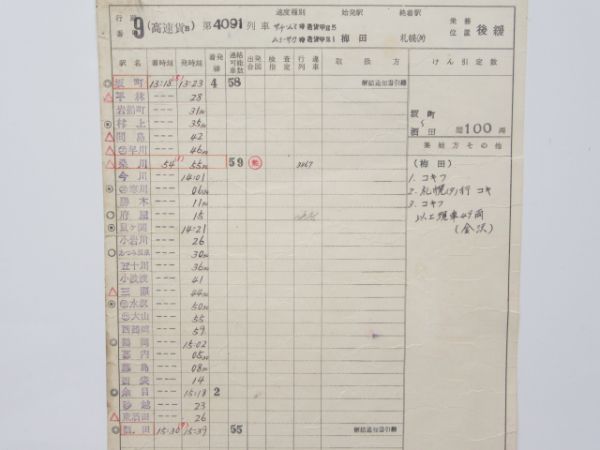 行路 9 (高速貨B) 第4091列車 速度種別 始発駅 終着駅 乗務 後緩
番 梅田 札幌(タ) 位置
駅名 着時刻 発時刻 着発線 連結可能車数 出発合図 検査指定 行違列車 取扱方 けん引定数
坂町 13-18 13-23 4 58
平林 --- 28
岩船町 --- 31
村上 --- 35
間島 --- 42
早川 --- 46
桑川 54 55 59
今川 --- 14-01
寒川 --- 06
勝木 --- 11
府屋 --- 15
鼠ケ関 --- 14-21
小岩川 --- 26
あつみ温泉 --- 30
五十川 --- 36
小波渡 --- 41
三瀬 --- 44
水沢 --- 50
大山 --- 55
西鶴岡 --- 59
鶴岡 --- 15-02
幕内 --- 05
藤島 --- 08
西袋 --- 14
余目 --- 15-18 2
砂越 --- 23
東酒田 --- 26
酒田 15-30 15-39 55
坂町
〜
酒田 100
乗継方その他
(梅田)
1. コキフ
2. 札幌(タ)行 コキ
3. コキフ
以上現車47両